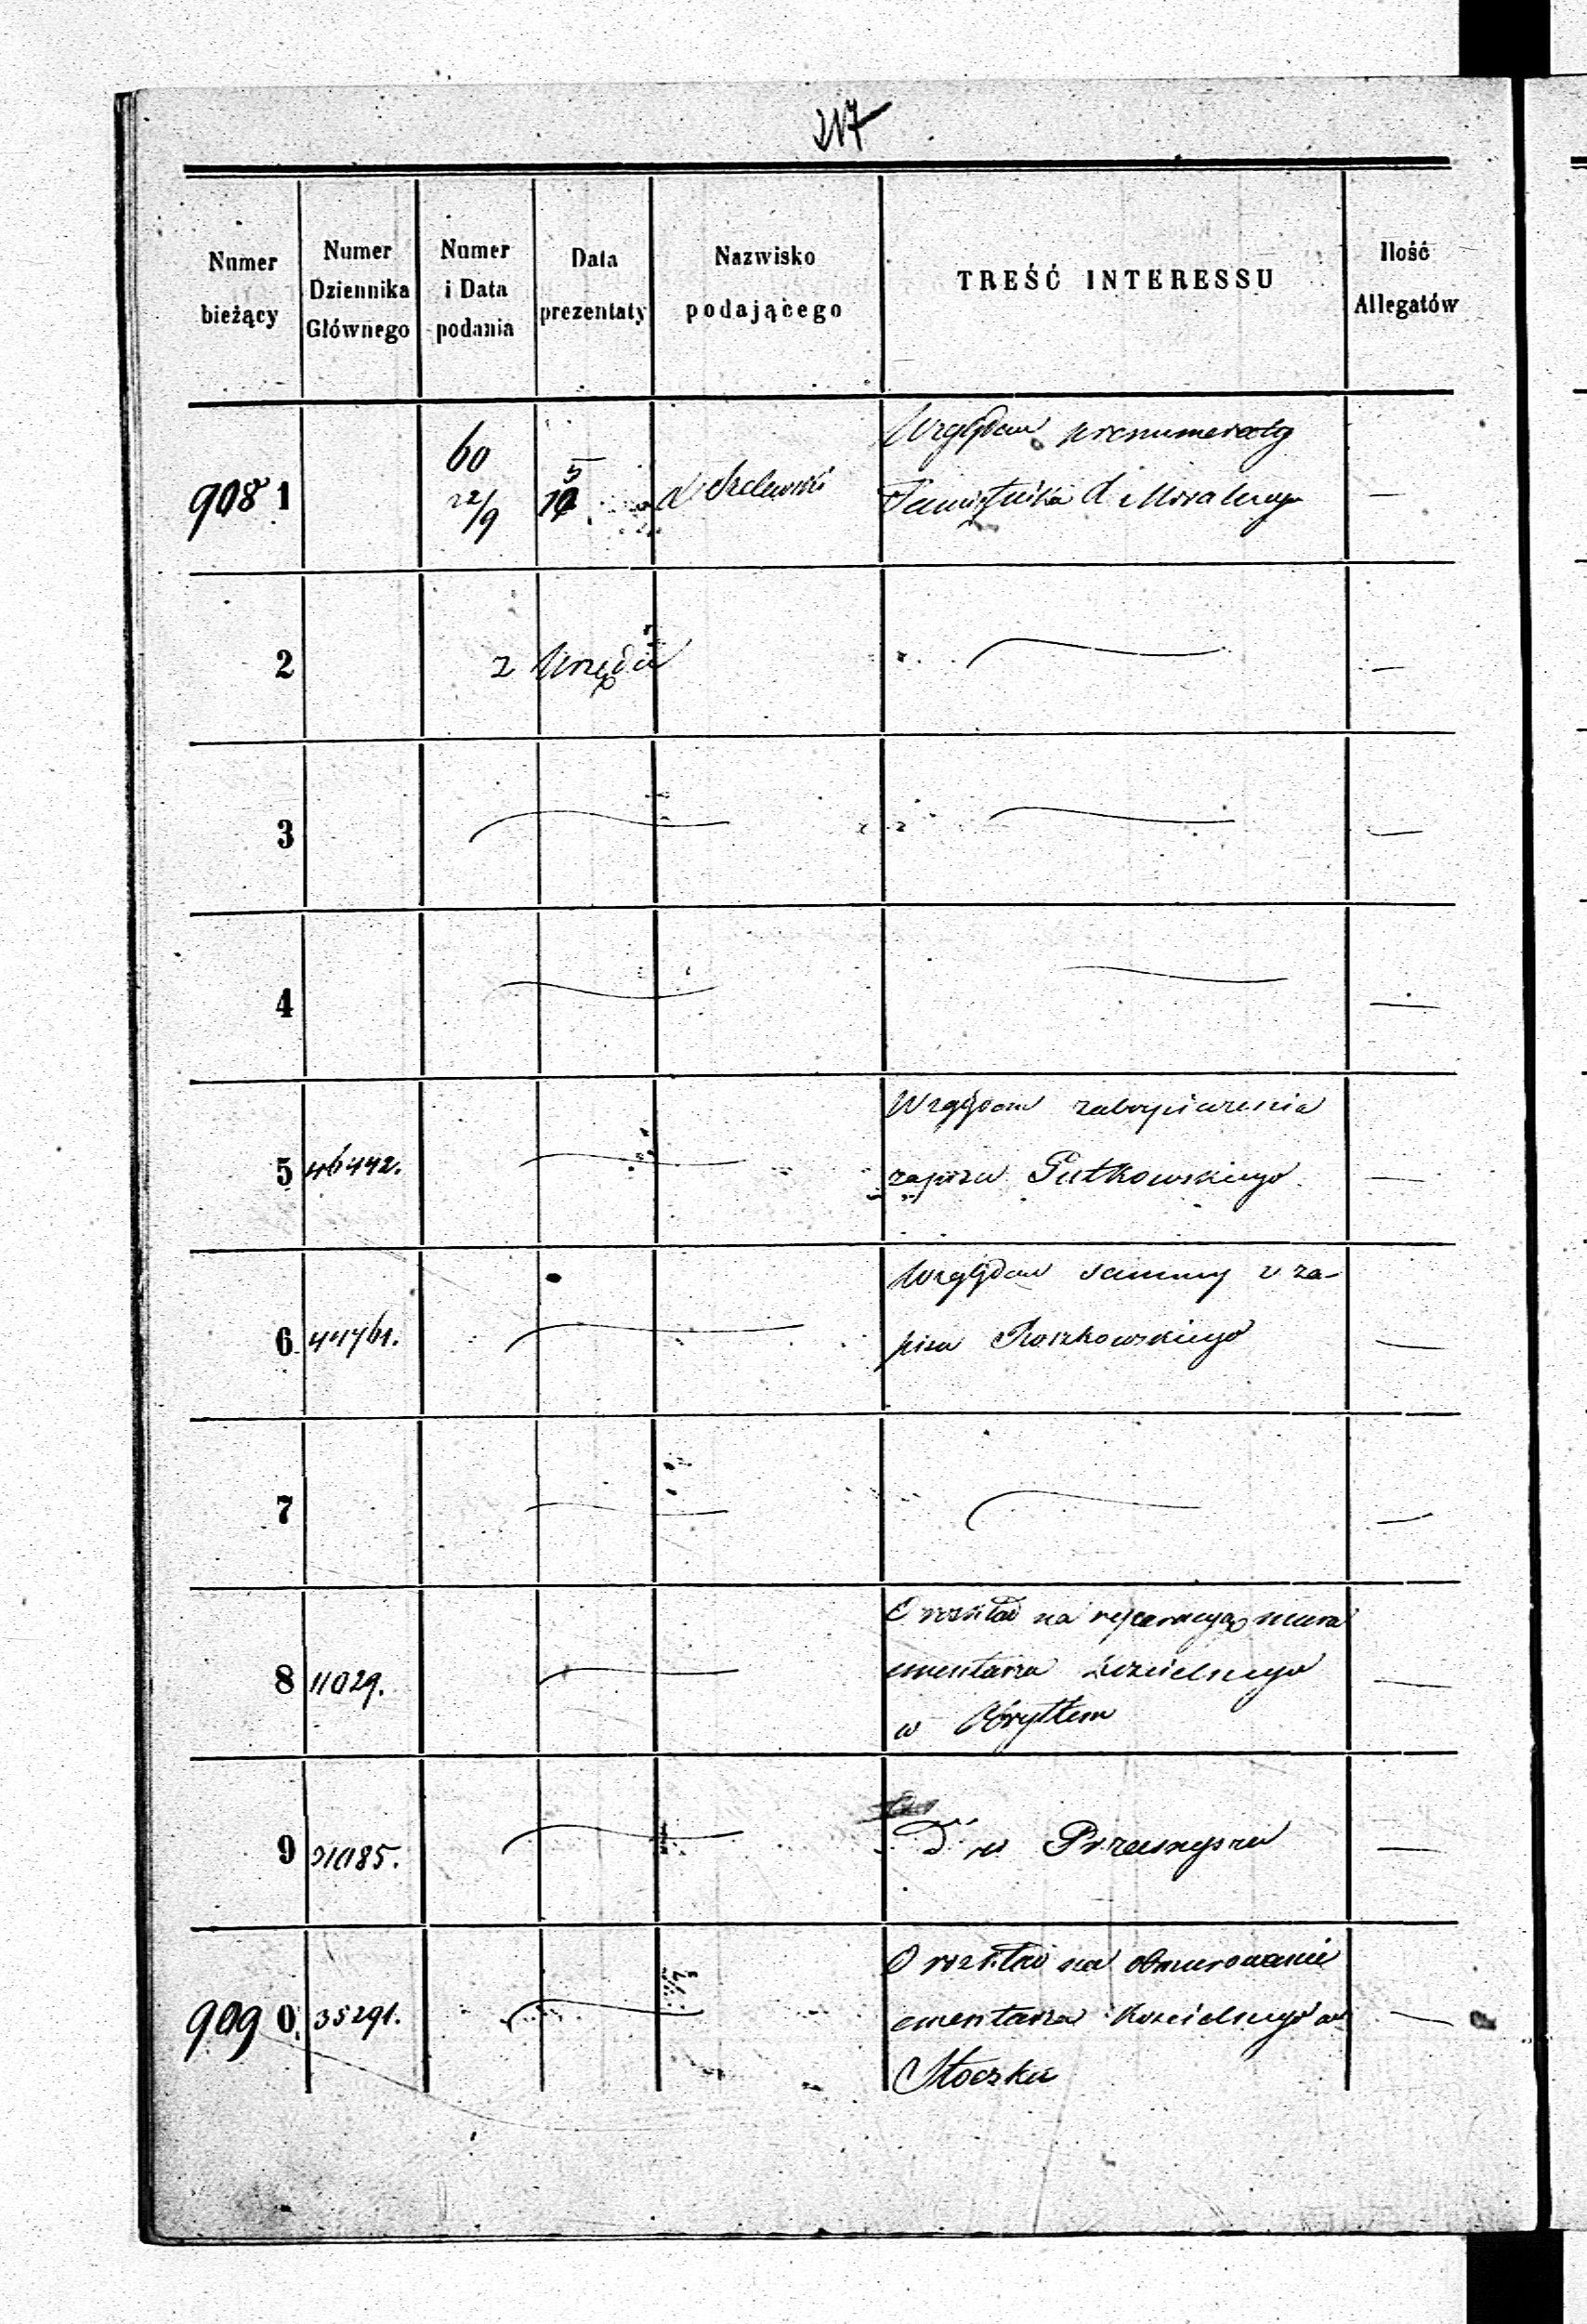 217
Numer bieżący
Numer Dziennika Głównego
Numer i Data podania
Data prezentaty
Nazwisko podającego
TREŚĆ INTERESSU
Ilość Allegatów
908 1
60
22/9
5
10
Względem prenumeraty
Pamiętnika
—
2
z Urzędu
—
3
—
4
—
5 46442.
Względem zabezpieczenia
zapisu Putkowskiego
—
6 44761.
Względem summy z za-
pisu Roszkowskiego
—
7
—
8 11029.
O rozkład na reperacyą mura
cmentarza kościelnego
w
—
9 31085.
w Przasnyszu
—
909 0 35291.
O rozkład na obmurowanie
cmentarza kościelnego w
Stoczku
—